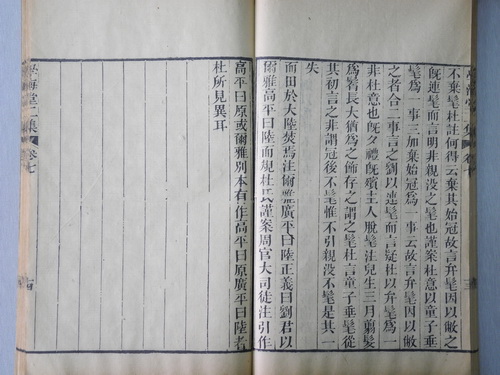 不棄髦杜註何得云棄其始冠故言弁髦因以敝之
既連髦而言明非親没之髦也謹案杜意以童子垂
髦為一事三加棄始冠為一事云故言弁髦因以敝
之者合二事言之劉以連髦而言疑杜以弁髦為一
非杜意也既夕禮既殯主人脫髦注兒生三月翦髮
為鬌長大猶為之飾存之謂之髦杜言童子垂髦從
其初言之非謂冠後不髦惟不引親没不髦是其一
失
而田於大陸焚焉注爾雅廣平曰陸正義曰劉君以
爾雅高平曰陸而規杜氏謹案周官大司徒注引作
高平曰原或爾雅別本有作高平曰原廣平曰陸者
杜所見異耳
學海堂二集 卷七